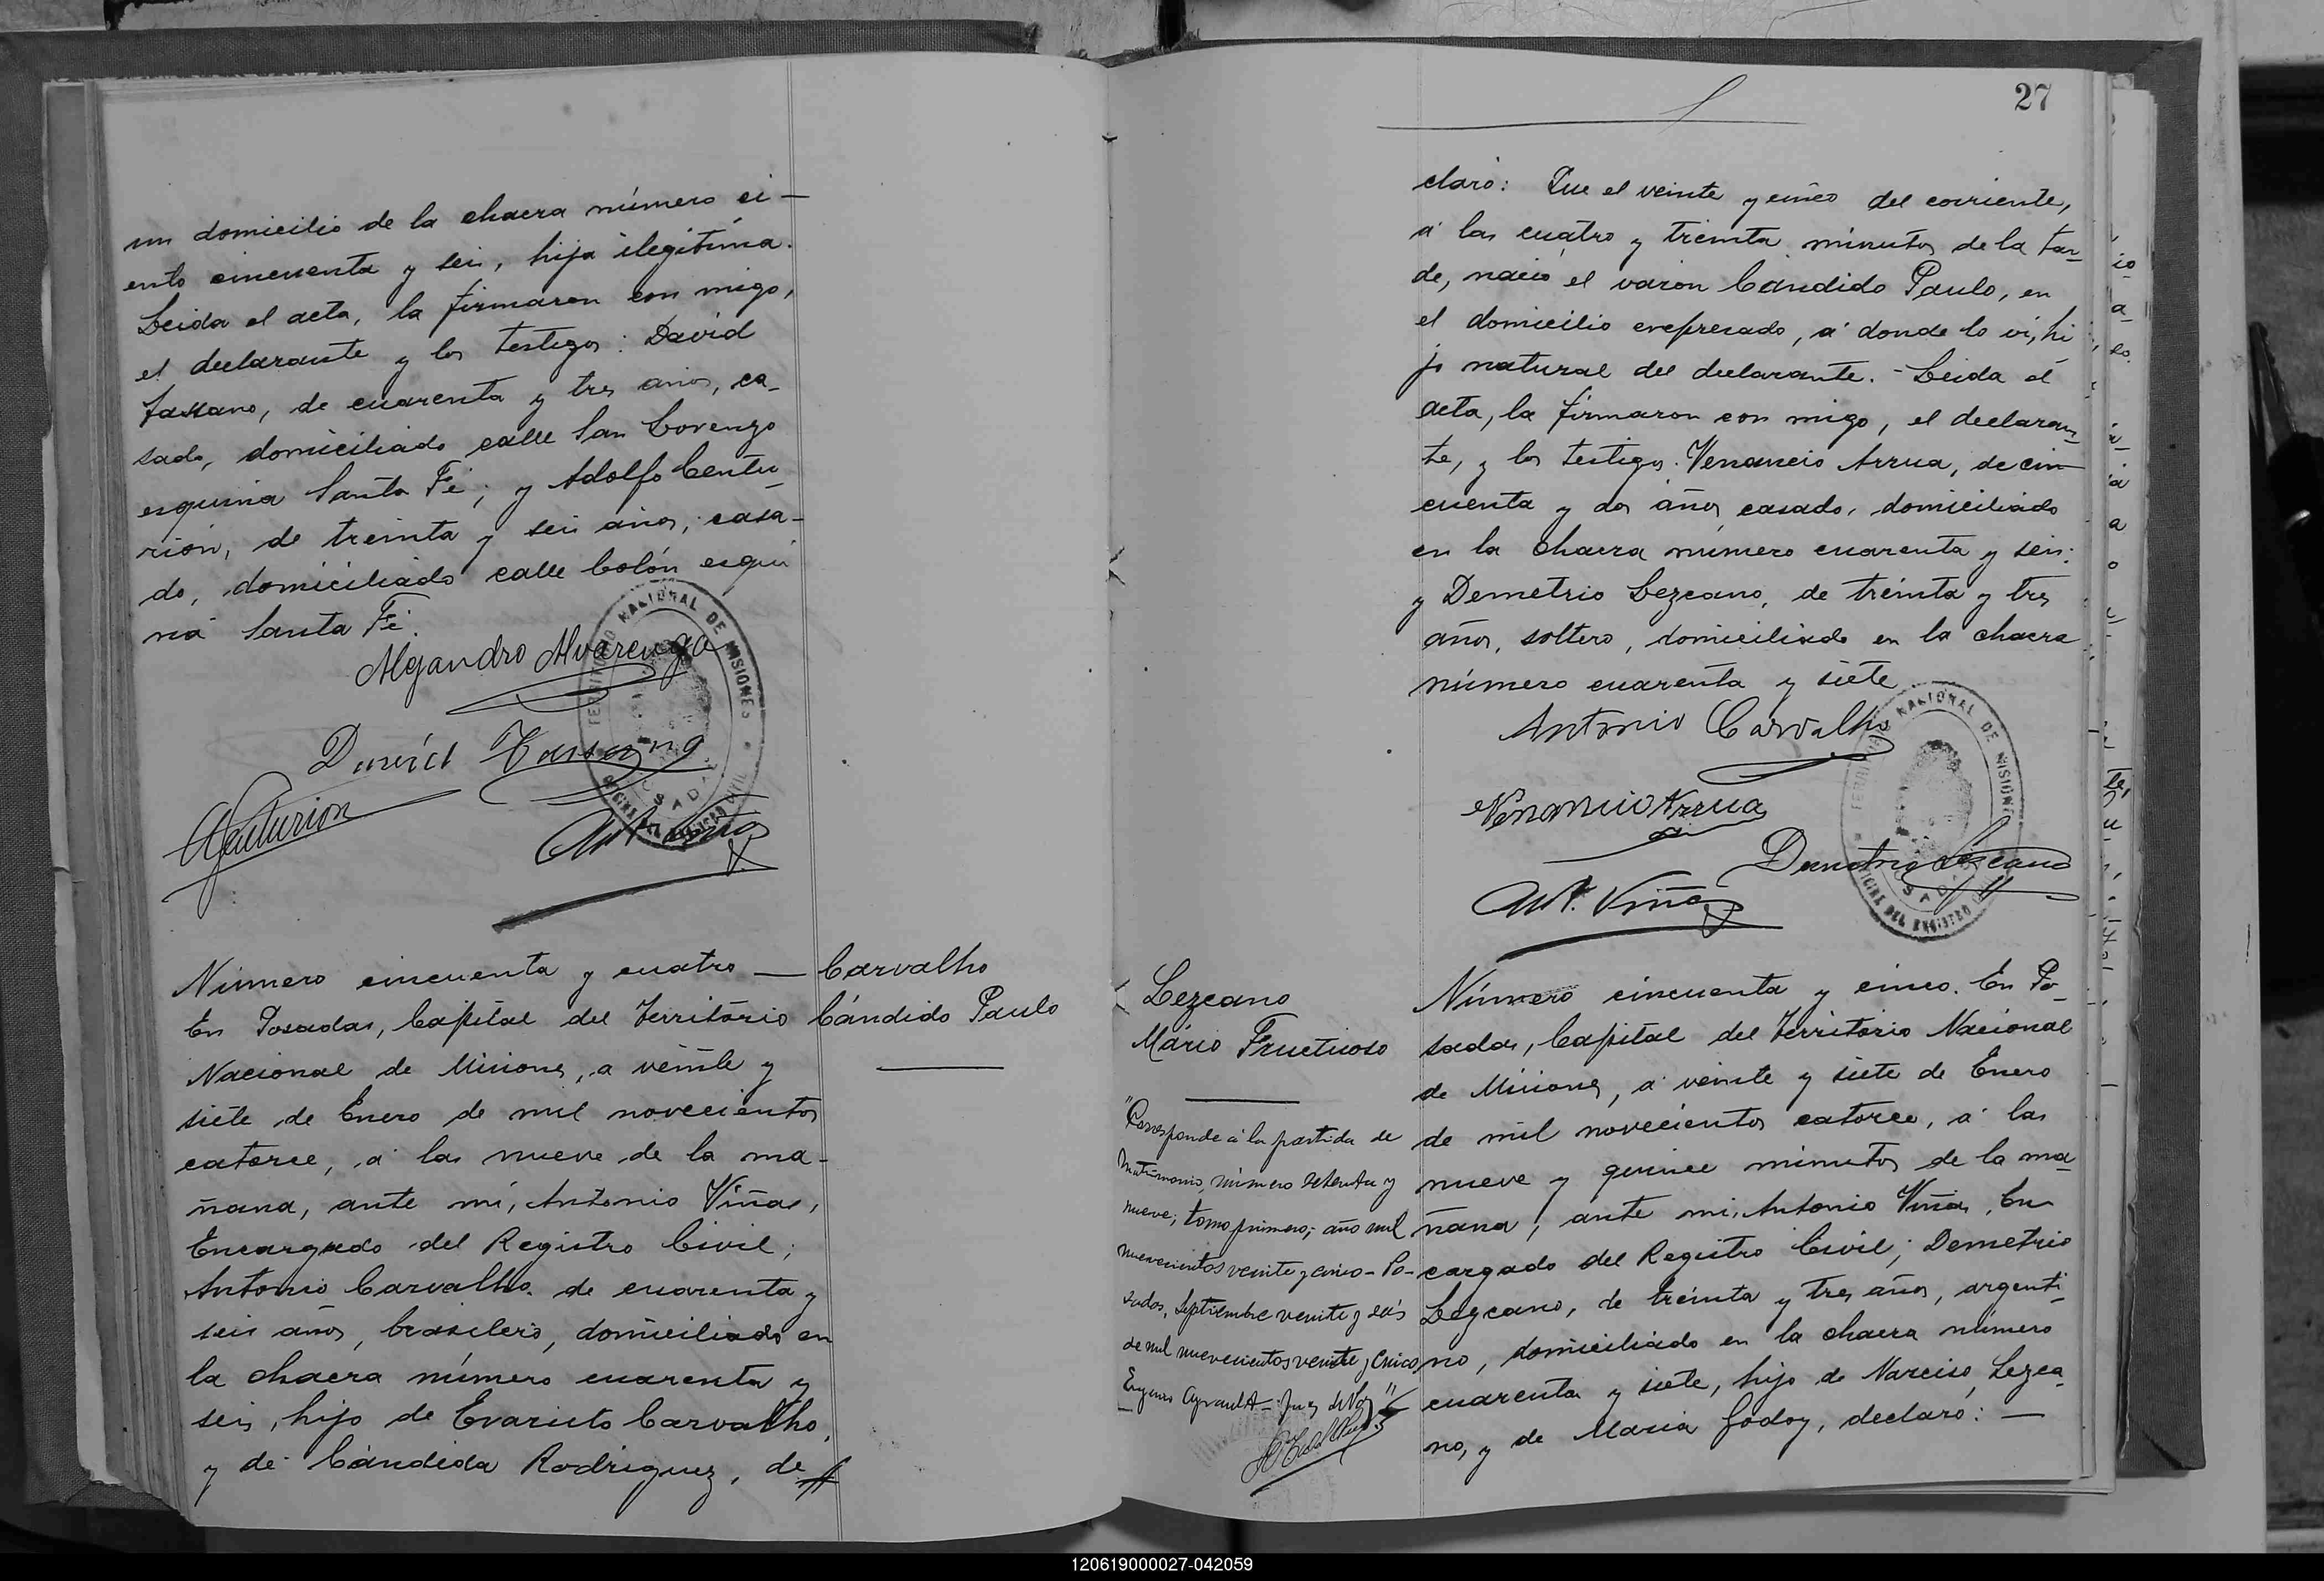 un domicilio de la chacra número ci—
ento cincuenta y seis, hija ilegítima.
Leida el acta, la firmaron con migo,
el declarante y los testigos: David
Fassano, de cuarenta y tres años, ca-
sado, domiciliado calle San Lorenzo
esquina Santa Fé; y Adolfo Centu-
rión, de treinta y seis años, casa-
do, domiciliado calle Colón esqui
na Santa Fé.
Alejandro Alvarenga
David Fassano
ACenturion
Ant. Viñas
TERRITORIO NACIONAL DE MISIONES
OFICINA DEL REGISTRO CIVIL
POSADAS
Número cincuenta y cuatro —
En Posadas, Capital del Territorio
Nacional de Misiones, a veinte y
siete de Enero de mil novecientos
catorce, á las nueve de la ma-
ñana, ante mí, Antonio Viñas,
Encargado del Registro Civil;
Antonio Carvalho, de cuarenta y
seis años, brasilero, domiciliado en
la chacra número cuarenta y
seis, hijo de Evaristo Carvalho,
y de Cándida Rodriguez, de
Carvalho
Cándido Paulo
27
claró: Que el veinte y cinco del corriente,
á las cuatro y treinta minutos de la tar-
de, nació el varon Cándido Paulo, en
el domicilio expresado, á donde lo ví, hi
jo natural del declarante. - Leida el
acta, la firmaron con migo, el declaran-
te, y los testigos: Venancio Arrua, de cin
cuenta y dos años, casado, domiciliado
en la chacra número cuarenta y seis;
y Demetrio Lezcano, de treinta y tres
años, soltero, domiciliado en la chacra
número cuarenta y siete
Antonio Carvalho
Venancio Arrua
Demetrio Lezcano
Ant. Viñas
TERRITORIO NACIONAL DE MISIONES
OFICINA DEL REGISTRO CIVIL
POSADAS
Lezcano
Mário Fructuoso
"Corresponde á la partida de
Matrimonio, número setenta y
nueve; tomo primero; año mil
nuevecientos veinte y cinco - Po-
sadas, Septiembre veinte y seis
de mil nuevecientos veinte y cinco
Juez de Paz"
Número cincuenta y cinco. En Po-
sadas, Capital del Territorio Nacional
de Misiones, á veinte y siete de Enero
de mil novecientos catorce, á las
nueve y quince minutos de la ma-
ñana, ante mí, Antonio Viñas, En
cargado del Registro Civil; Demetrio
Lezcano, de treinta y tres años, argenti-
no, domiciliado en la chacra número
cuarenta y siete, hijo de Narciso Lezca-
no, y de Maria Godoy, declaró: —
120619000027-042059